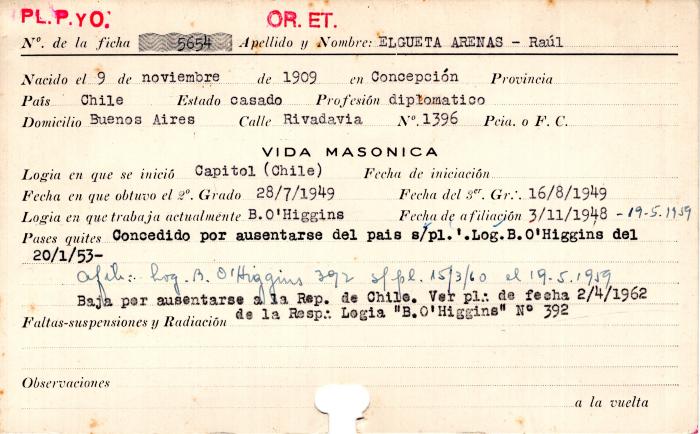 PL.P.YO. OR. ET.
Nº. de la ficha 5654 Apellido y Nombre: ELGUETA ARENAS - Raúl
Nacido el 9 de noviembre de 1909 en Concepción Provincia
País Chile Estado casado Profesión diplomatico
Domicilio Buenos Aires Calle Rivadavia Nº. 1396 Pcia. o F. C.
VIDA MASONICA
Logia en que se inició Capitol (Chile) Fecha de iniciación
Fecha en que obtuvo el 2º. Grado 28/7/1949 Fecha del 3er. Gr.·. 16/8/1949
Logia en que trabaja actualmente B.O'Higgins Fecha de afiliación 3/11/1948 - 19.5.1959
Pases quites Concedido por ausentarse del pais s/pl.'.Log.B.O'Higgins del
20/1/53-
Afil.: Log. B. O'Higgins 392 s/pl. 15/3/60 el 19.5.1959
Baja por ausentarse a la Rep. de Chile. Ver pl: de fecha 2/4/1962
Faltas-suspensiones y Radiación de la Resp: Logia "B.O'Higgins" Nº 392
Observaciones
a la vuelta